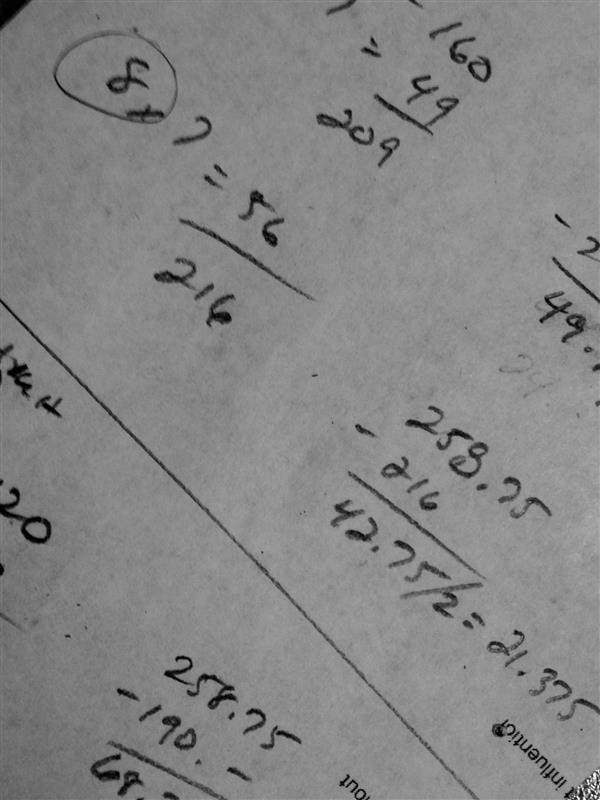 160
= 49
209
8 x 7
= 56
216
- 2
49.
24
258.75
- 216
42.75/2 = 21.375
20
258.75
- 190. -
68.
t influential
out